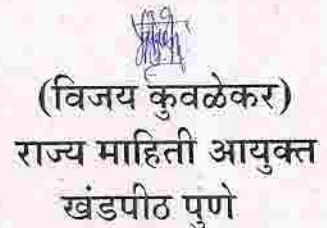 (विजय कुवळेकर)
राज्य माहिती आयुक्त
खंडपीठ पुणे